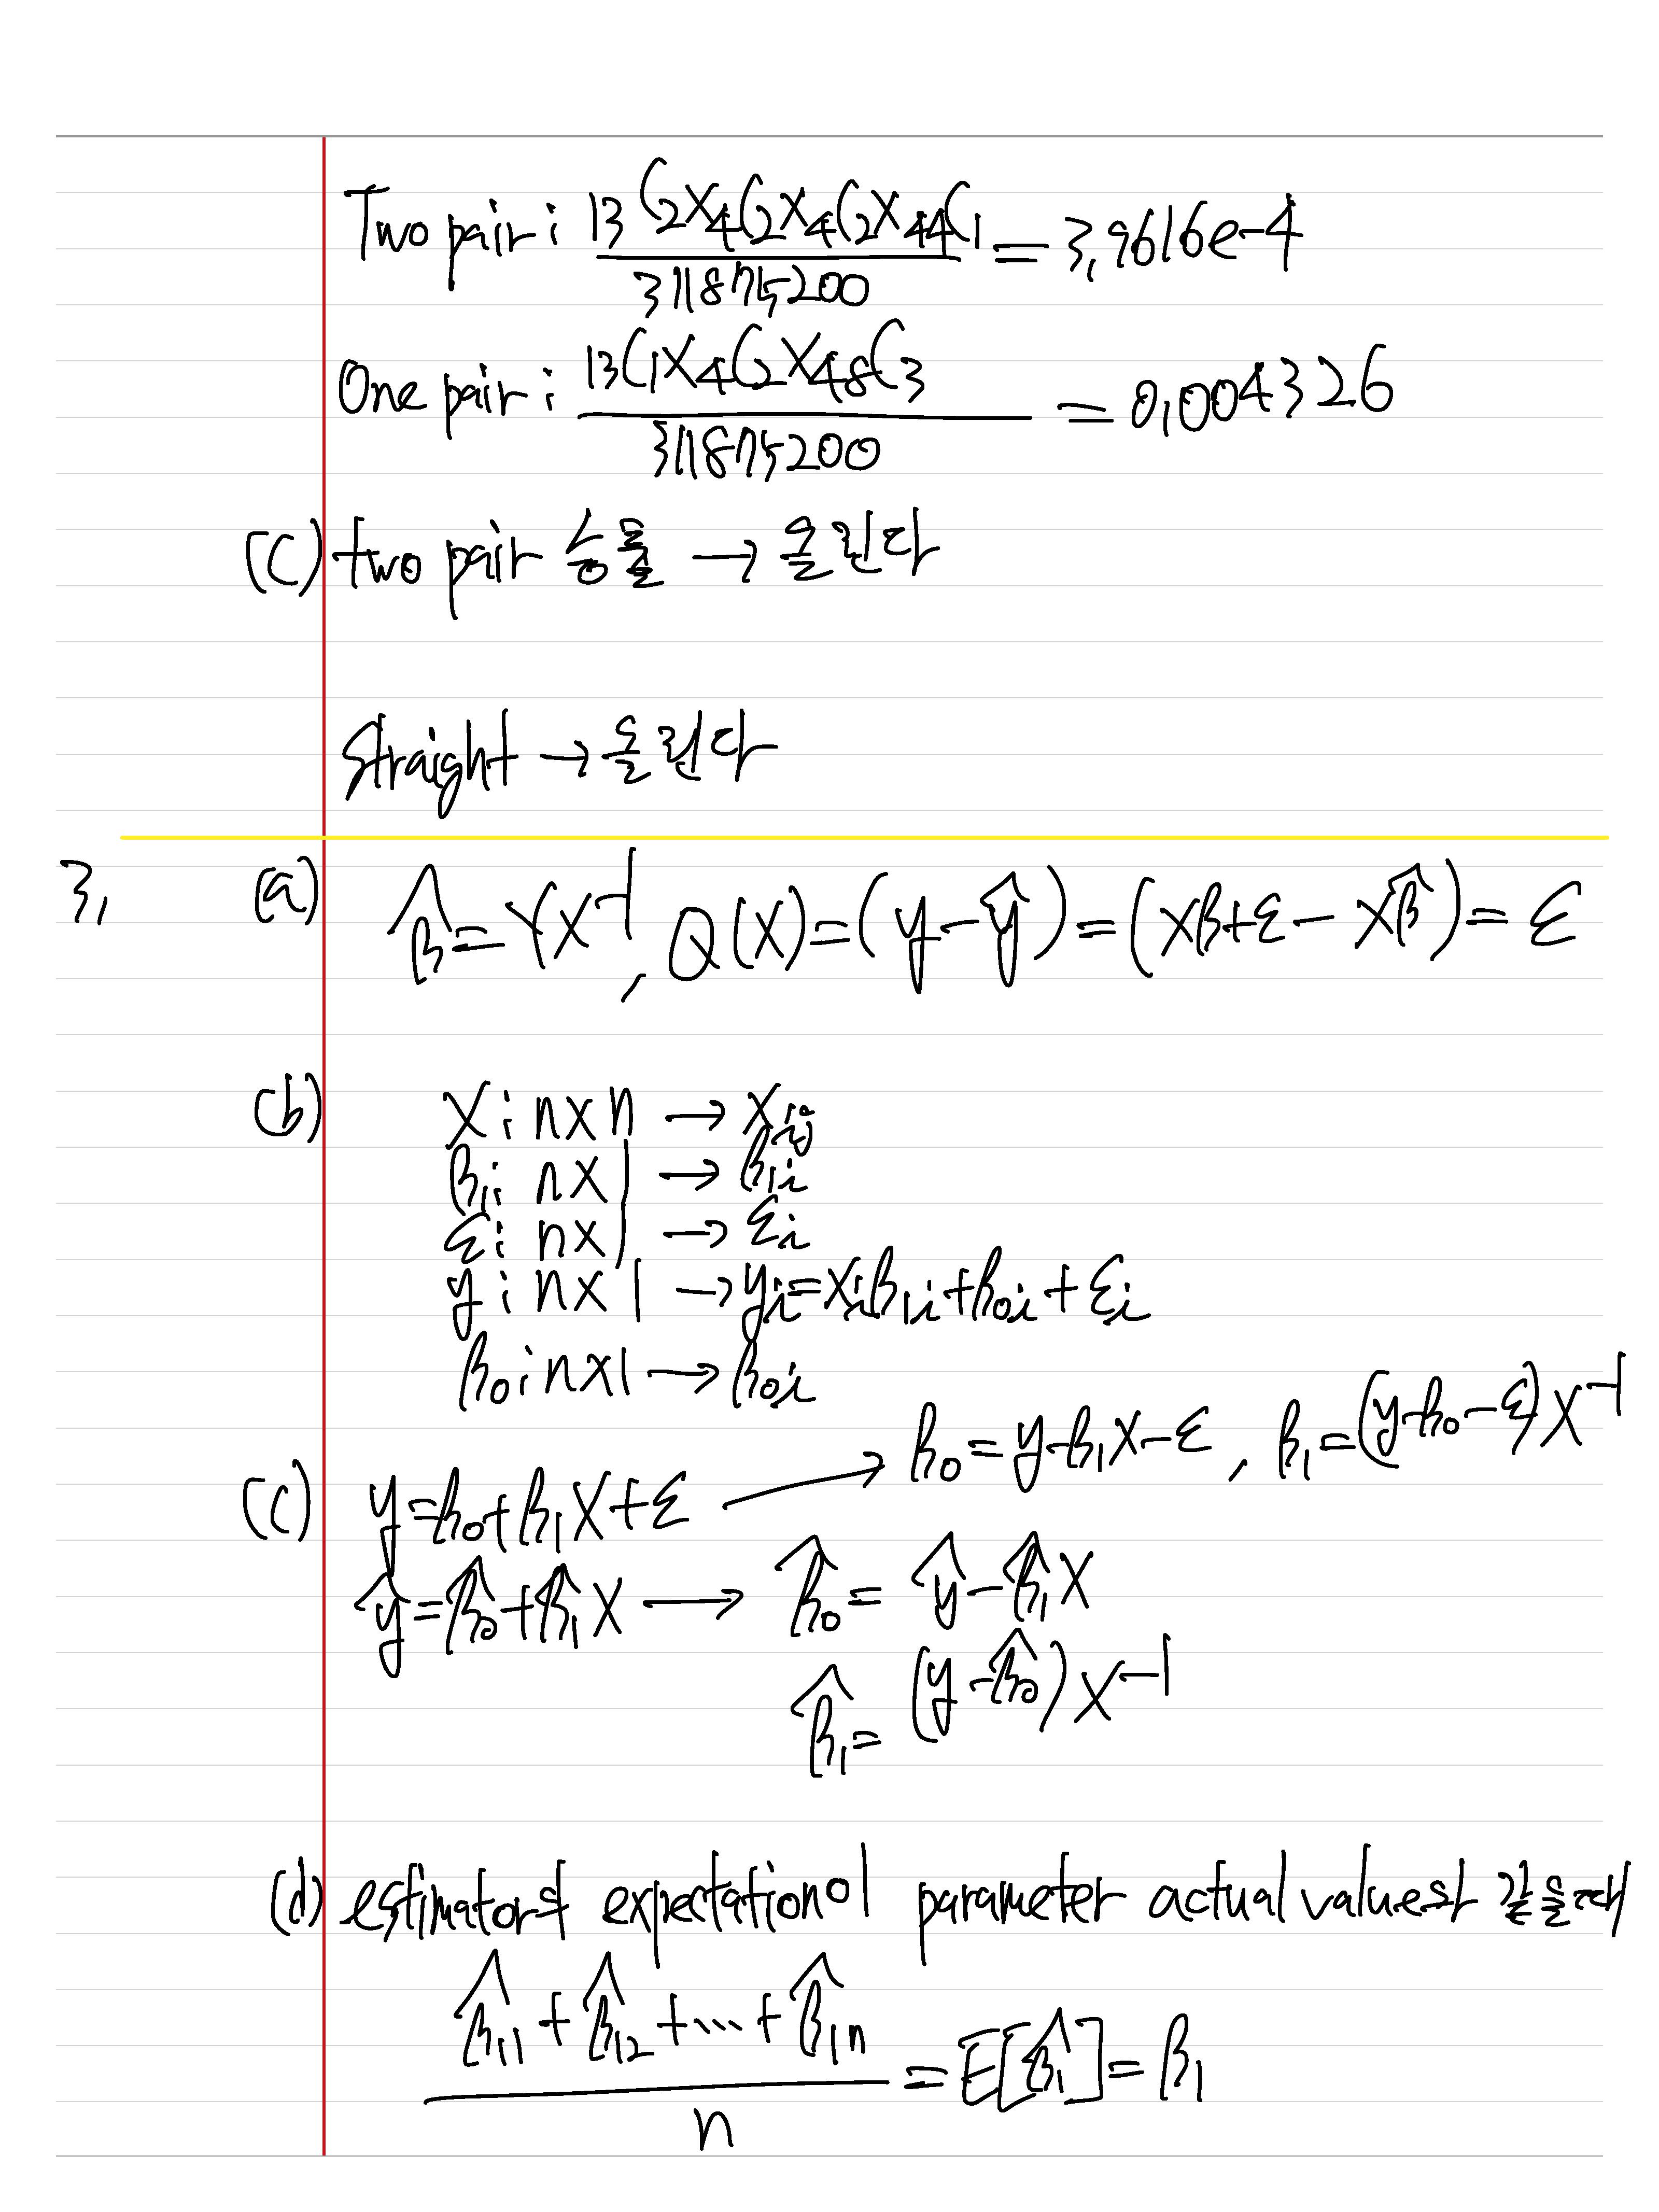 Two pair : 13C2×4C2×4C2×44C1 / 311875200 = 3.9616e-4
One pair : 13C1×4C2×48C3 / 311875200 = 0.004326
(c) two pair 승률 → 올린다
straight → 올린다
3. (a) β̂ = YX⁻¹, Q(X) = (y − ŷ) = (Xβ+ε − Xβ̂) = ε
(b) X : n×n → xij
β1 : n×1 → β1i
ε : n×1 → εi
y : n×1 → yi = xiβ1i + β0i + εi
β0 : n×1 → β0i
(c) y = β0 + β1X + ε → β0 = y − β1X − ε, β1 = (y − β0 − ε)X⁻¹
ŷ = β̂0 + β̂1X → β̂0 = ŷ − β̂1X
β̂1 = (y − β̂0)X⁻¹
(d) estimator의 expectation이 parameter actual value와 같을때
(β̂11 + β̂12 + ... + β̂1n) / n = E[β̂1] = β1